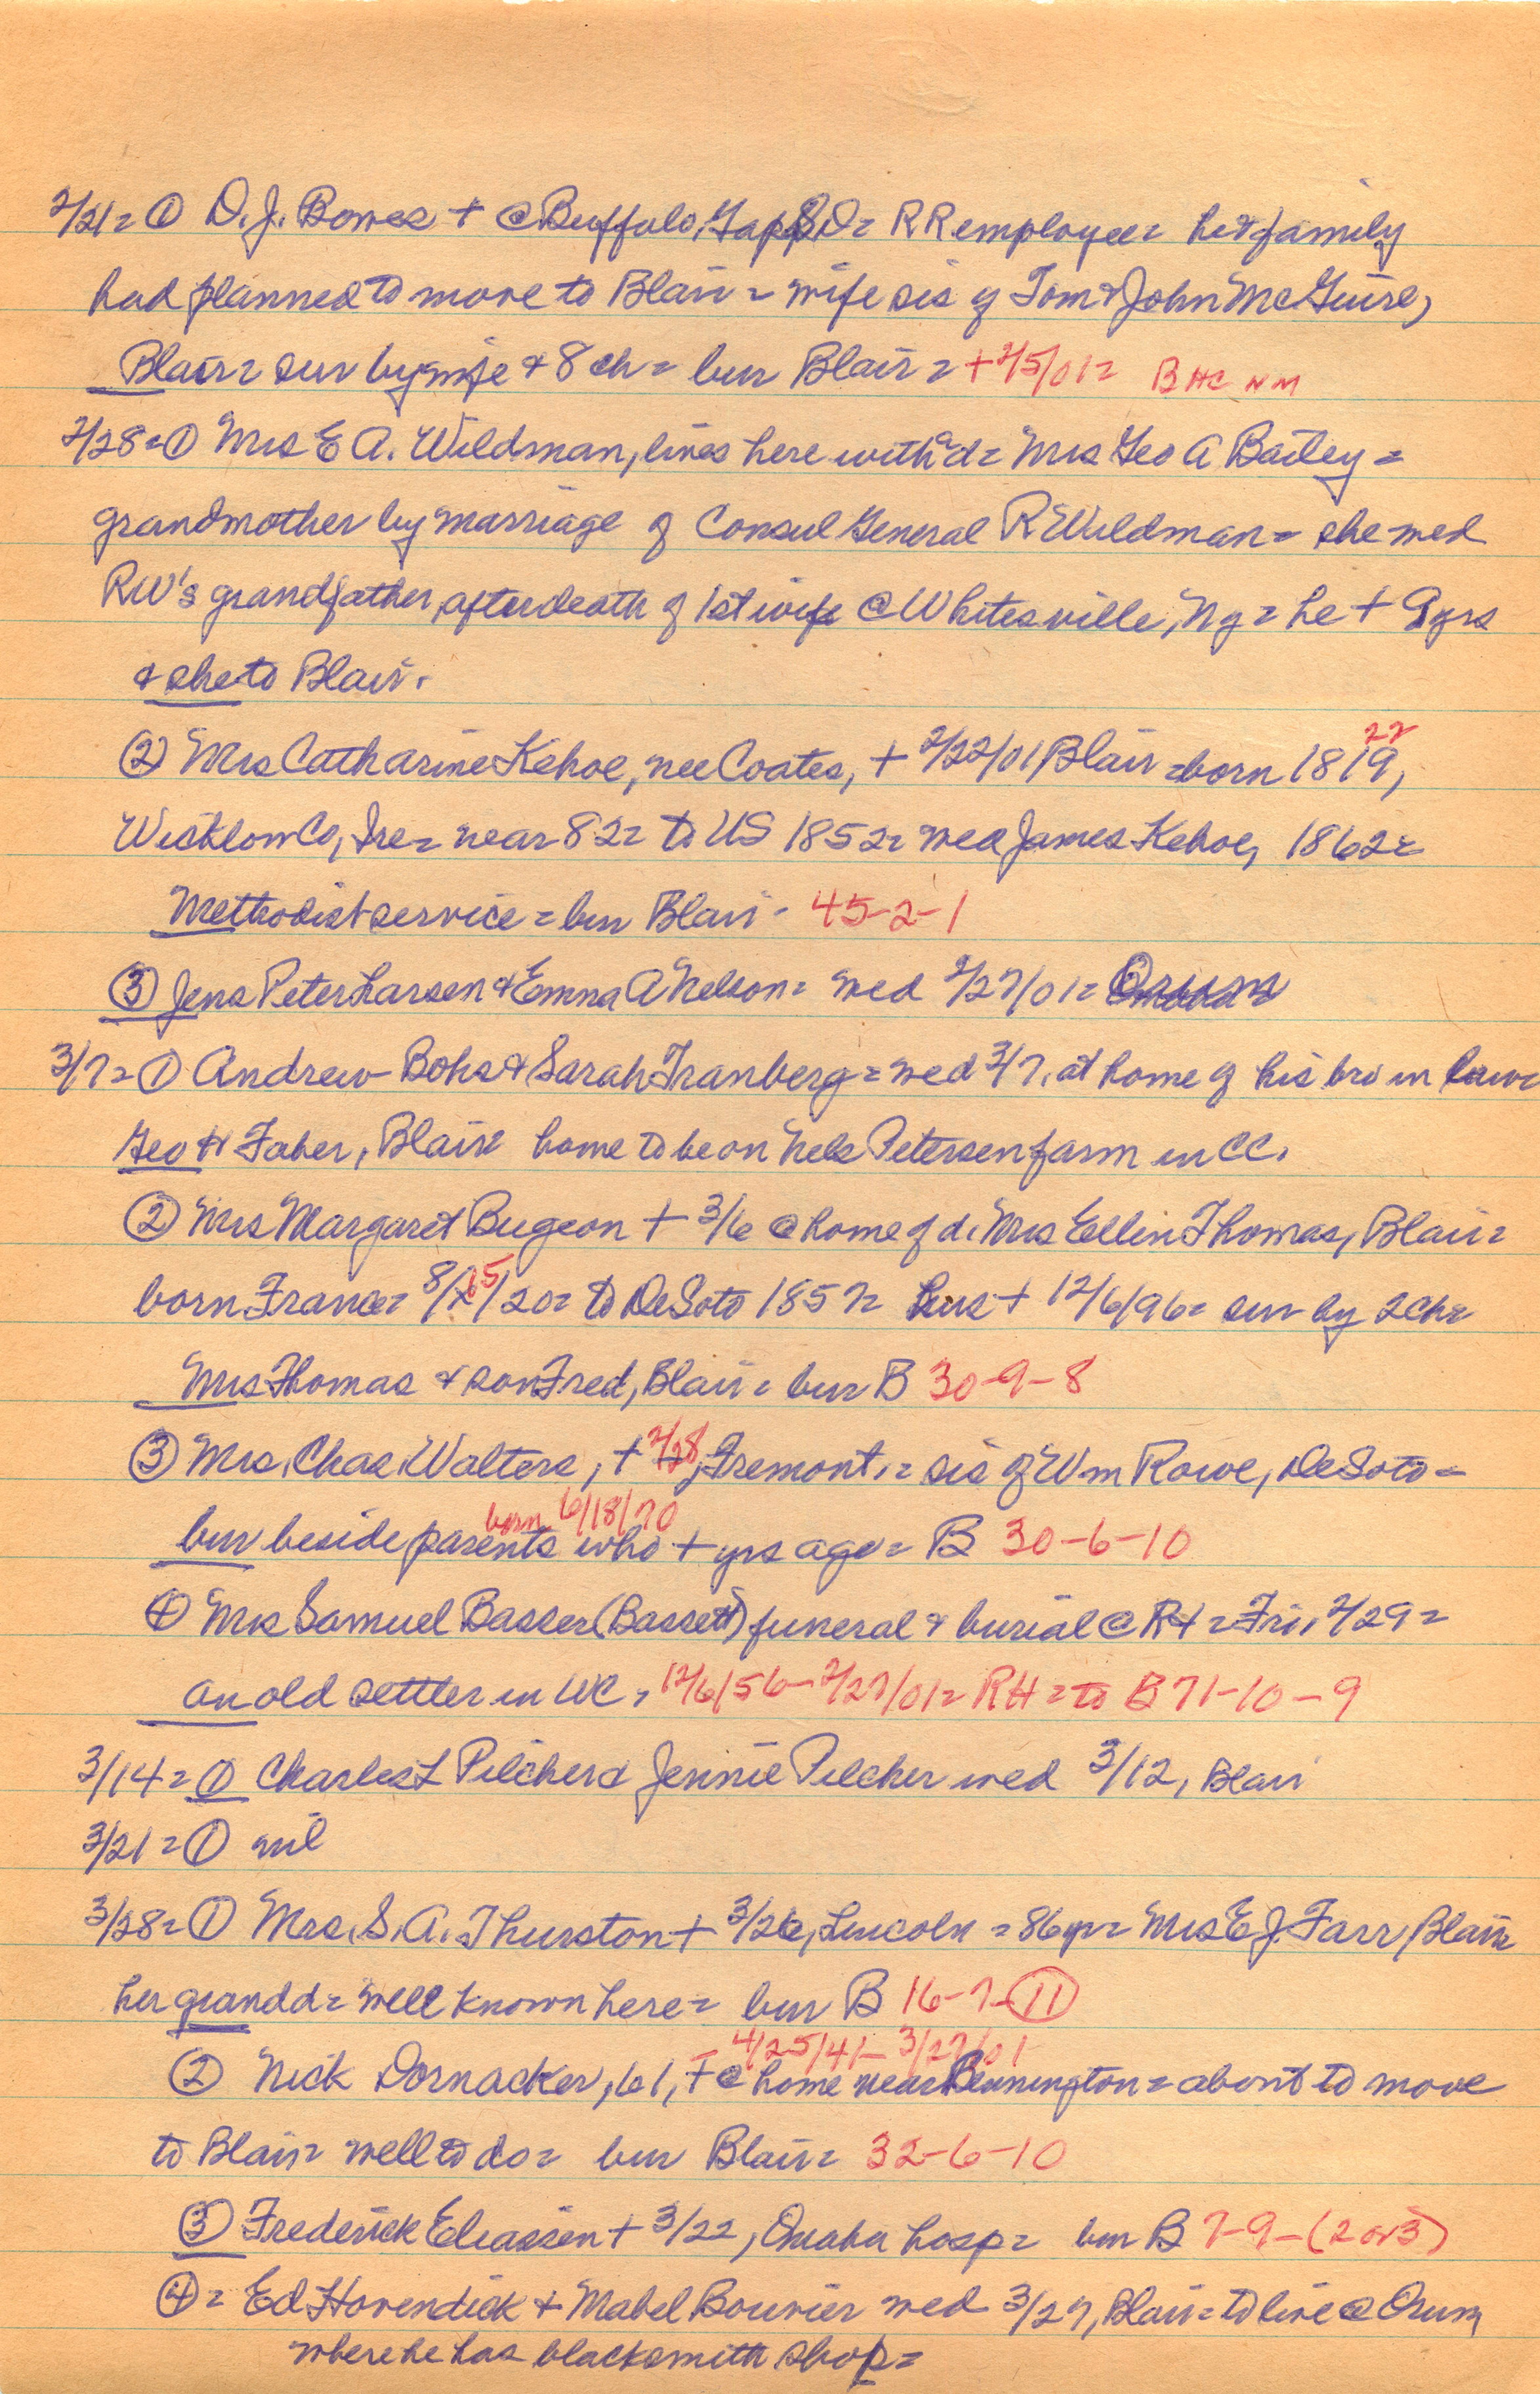 2/21= ① D.J. Bowes + @ Buffalo Gap SD= RR employee= he & family
had planned to move to Blair = wife sis of Tom & John McGuire,
Blair= sur by wife & 8 ch= bur Blair = +2/5/01= B HC NM
2/28=① Mrs E A. Wildman, lives here with d= Mrs Geo A Bailey =
grandmother by marriage of Consul General R Wildman= she wed
RW's grandfather, after death of 1st wife @ Whitesville, Ny= he + 9 yrs
& she to Blair.
22
② Mrs Catharine Kehoe, nee Coates, + 2/22/01 Blair =born 1819,
Wicklow Co, Ire= near 82= to US 1852= wed James Kehoe, 1862=
Methodist service = bur Blair - 45-2-1
③ Jens Peter Larsen & Emma A Nelson= wed 2/27/01= Orum
3/7=① Andrew Bohs & Sarah Tranberg= wed 3/7, at home of his bro in law
Geo H Faber, Blair= home to be on Nels Petersen farm in CC.
② Mrs Margaret Bugeon + 3/6 @ home of d. Mrs Ellin Thomas, Blair=
born France= 8/15/20= to DeSoto 1857= hus + 12/6/96= sur by 2 ch=
Mrs Thomas & son Fred, Blair= bur B 30-9-8
③ Mrs. Chas. Walters, + 2/28, Fremont.= sis of Wm Rowe, DeSoto=
born 6/18/70
bur beside parents who + yrs ago= B 30-6-10
④ Mrs Samuel Basser (Bassett) funeral & burial @ RH= Fri, 2/29=
an old settler in WC, 12/6/56-2/27/01= RH= to B 71-10-9
3/14=① Charles L Pilcher & Jennie Pilcher wed 3/12, Blair
3/21=① nil
3/28=① Mrs. S. A. Thurston + 3/26, Lincoln = 86 yr= Mrs E J. Farr, Blair
her grandd= well known here= bur B 16-7-⑪
4/25/41-3/27/01
② Nick Dornacker, 61, + @ home near Bennington= about to move
to Blair= well to do= bur Blair= 32-6-10
③ Frederick Eliassen + 3/22, Omaha hosp= bur B 7-9-(2 or 3)
④= Ed Hovendick & Mabel Bouvier wed 3/27, Blair= to live @ Orum,
where he has blacksmith shop=